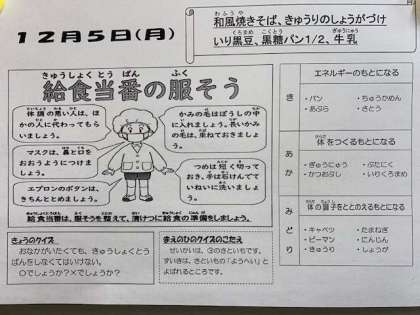 12月5日(月)
わふうや
和風焼きそば、きゅうりのしょうがづけ
くろまめ こくとう ぎゅうにゅう
いり黒豆、黒糖パン1/2、牛乳
きゅうしょく とう ばん ふく
給食当番の服そう
体調の悪い人は、ほ
かの人に代わってもら
いましょう。
マスクは、鼻と口を
おおうようにつけま
しょう。
エプロンのボタンは、
きちんととめましょう。
かみの毛はぼうしの中
に入れましょう。長いかみ
の毛は、束ねておきましょ
う。
つめは短く切って
おき、手は石けんでて
いねいに洗いましょ
う。
給食当番は、服そうを整えて、清けつに給食の準備をしましょう。
きょうのクイズ
おなかがいたくても、きゅうしょくとう
ばんをしなくてはいけない。
○でしょうか？×でしょうか？
まえのひのクイズのこたえ
せいかいは、③のさといもです。
ずいきは、さといもの「ようへい」と
よばれるところです。
き
エネルギーのもとになる
・パン ・ちゅうかめん
・あぶら ・さとう
あか
からだ
体をつくるもとになる
・ぎゅうにゅう ・ぶたにく
・かつおぶし ・いりくろまめ
みどり
からだ ちょうし
体の調子をととのえるもとになる
・キャベツ ・たまねぎ
・ピーマン ・にんじん
・きゅうり ・しょうが